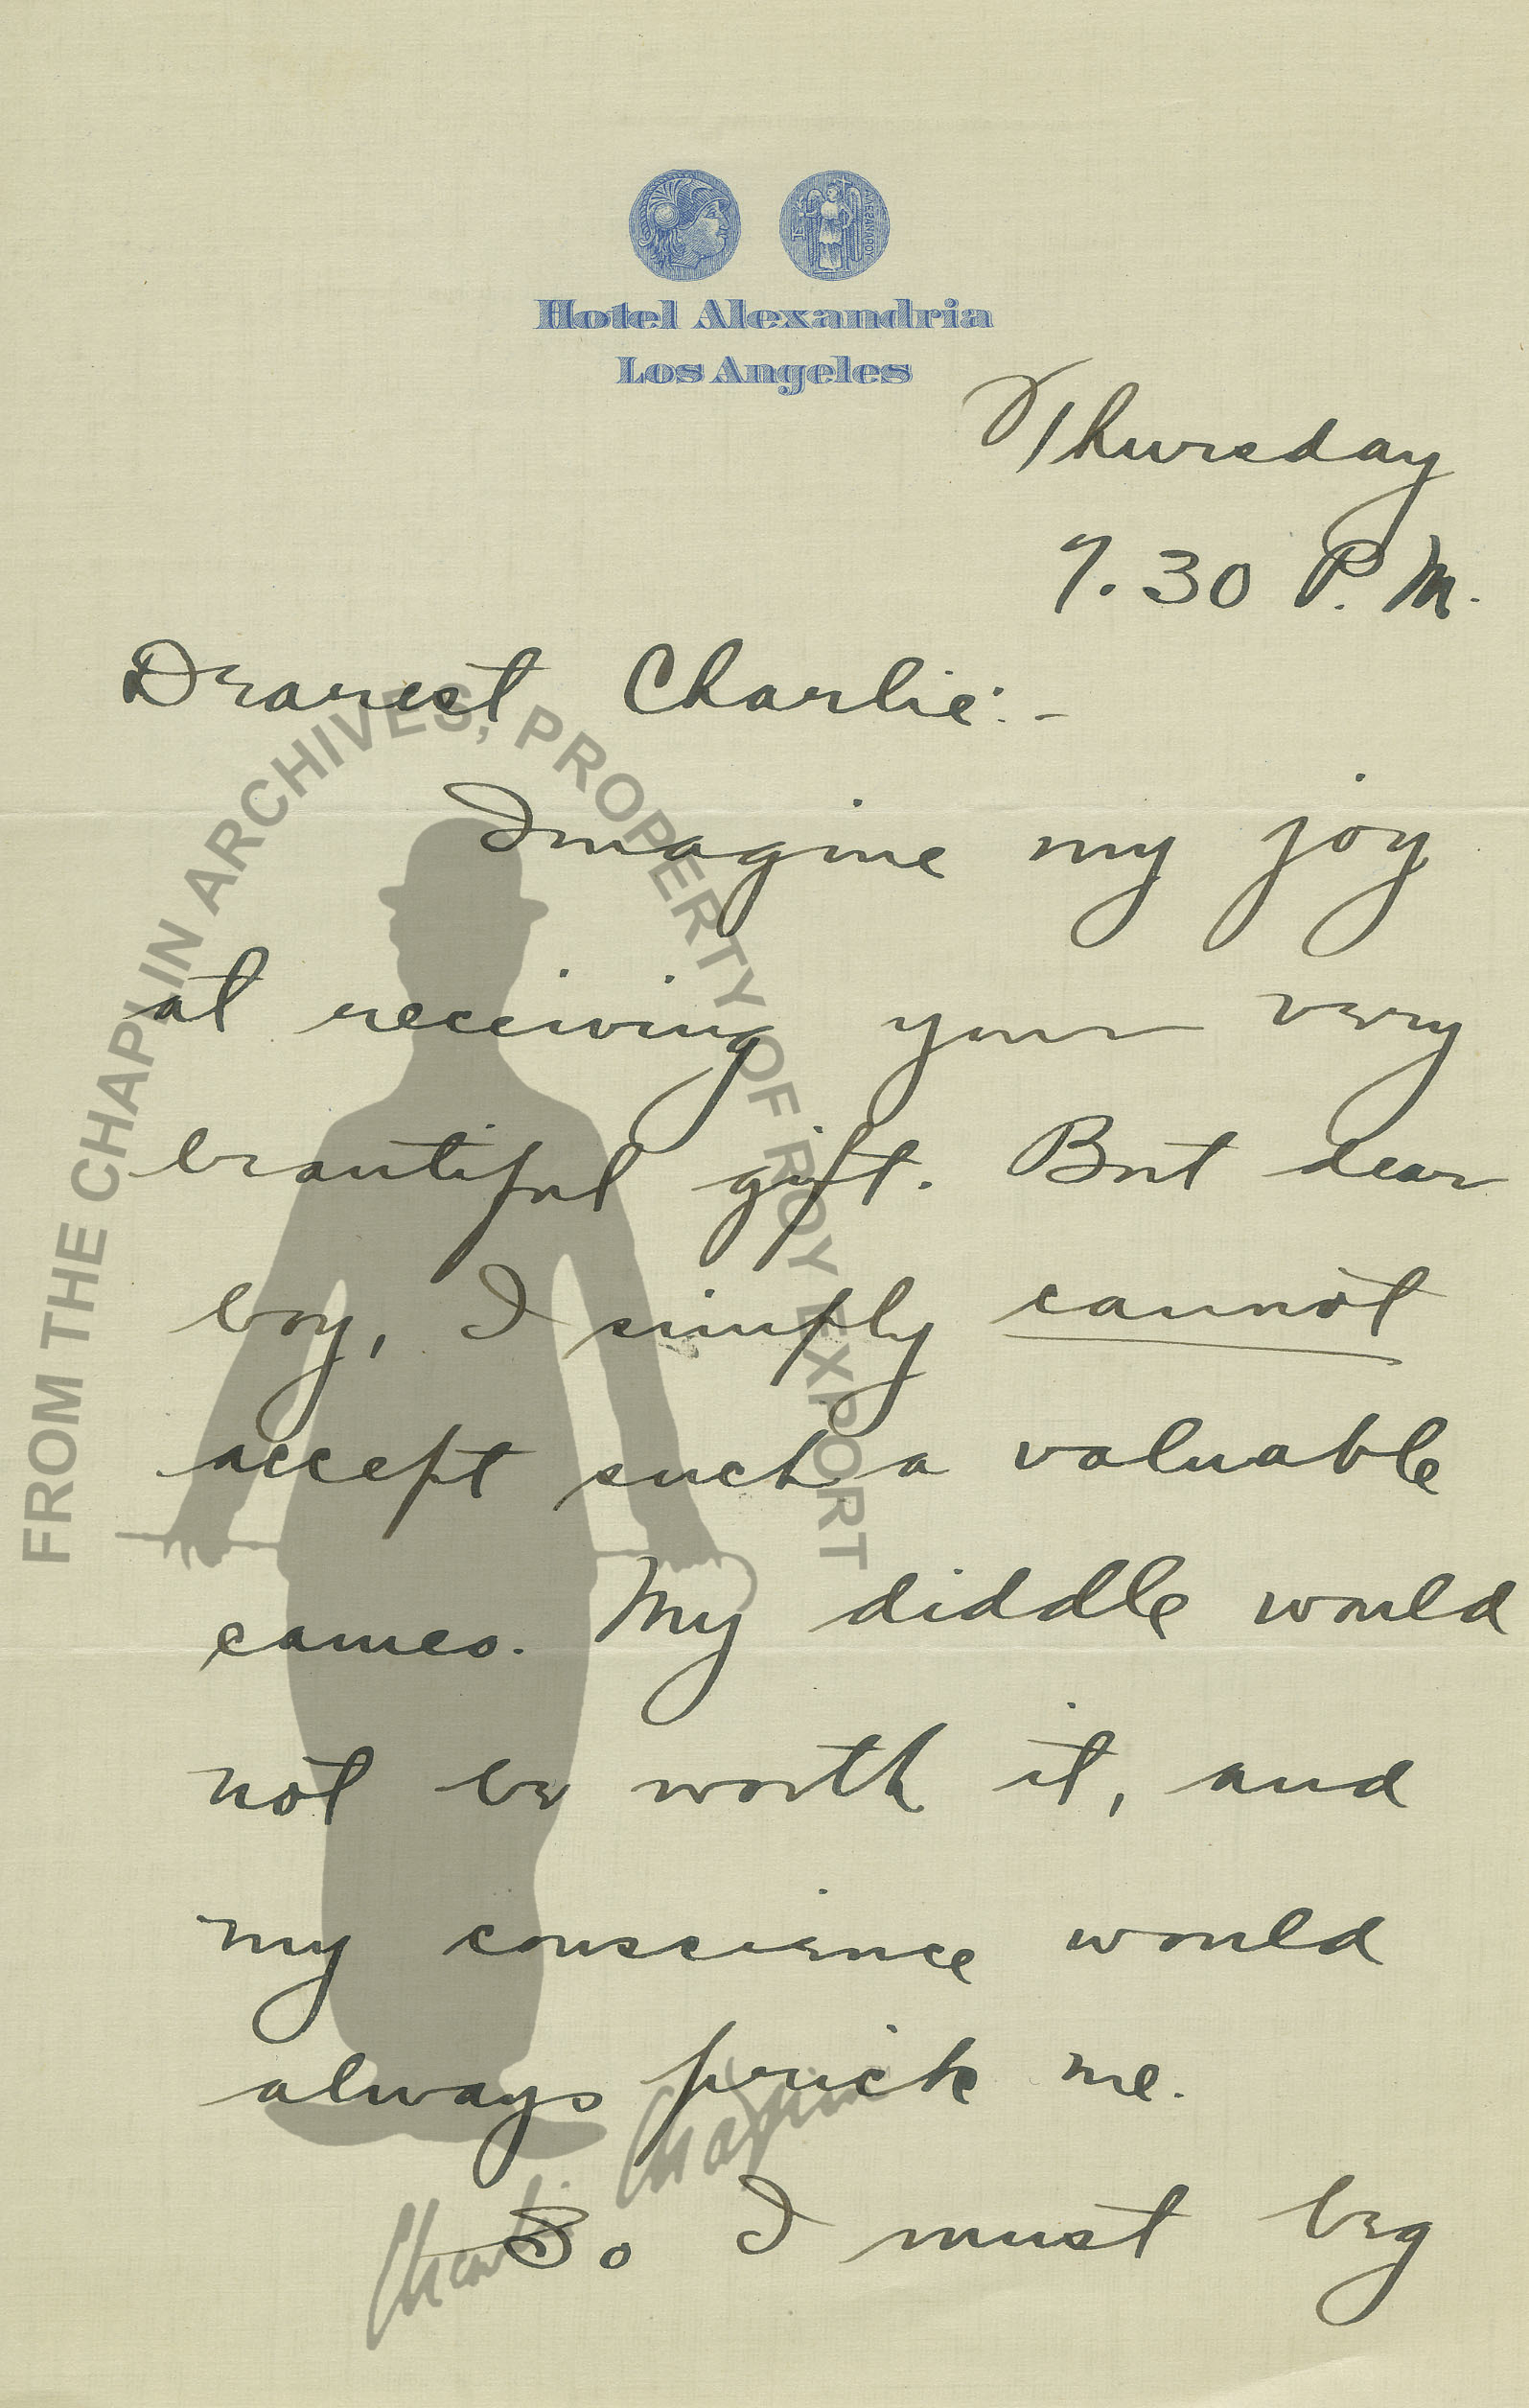 Hotel Alexandria
Los Angeles
Thursday
7.30 P.M.
Dearest Charlie:-
Imagine my joy
at receiving your very
beautiful gift. But dear
boy, I simply cannot
accept such a valuable
cameo. My diddle would
not be worth it, and
my conscience would
always prick me.
So I must beg
FROM THE CHAPLIN ARCHIVES, PROPERTY OF ROY EXPORT
Charlie Chaplin